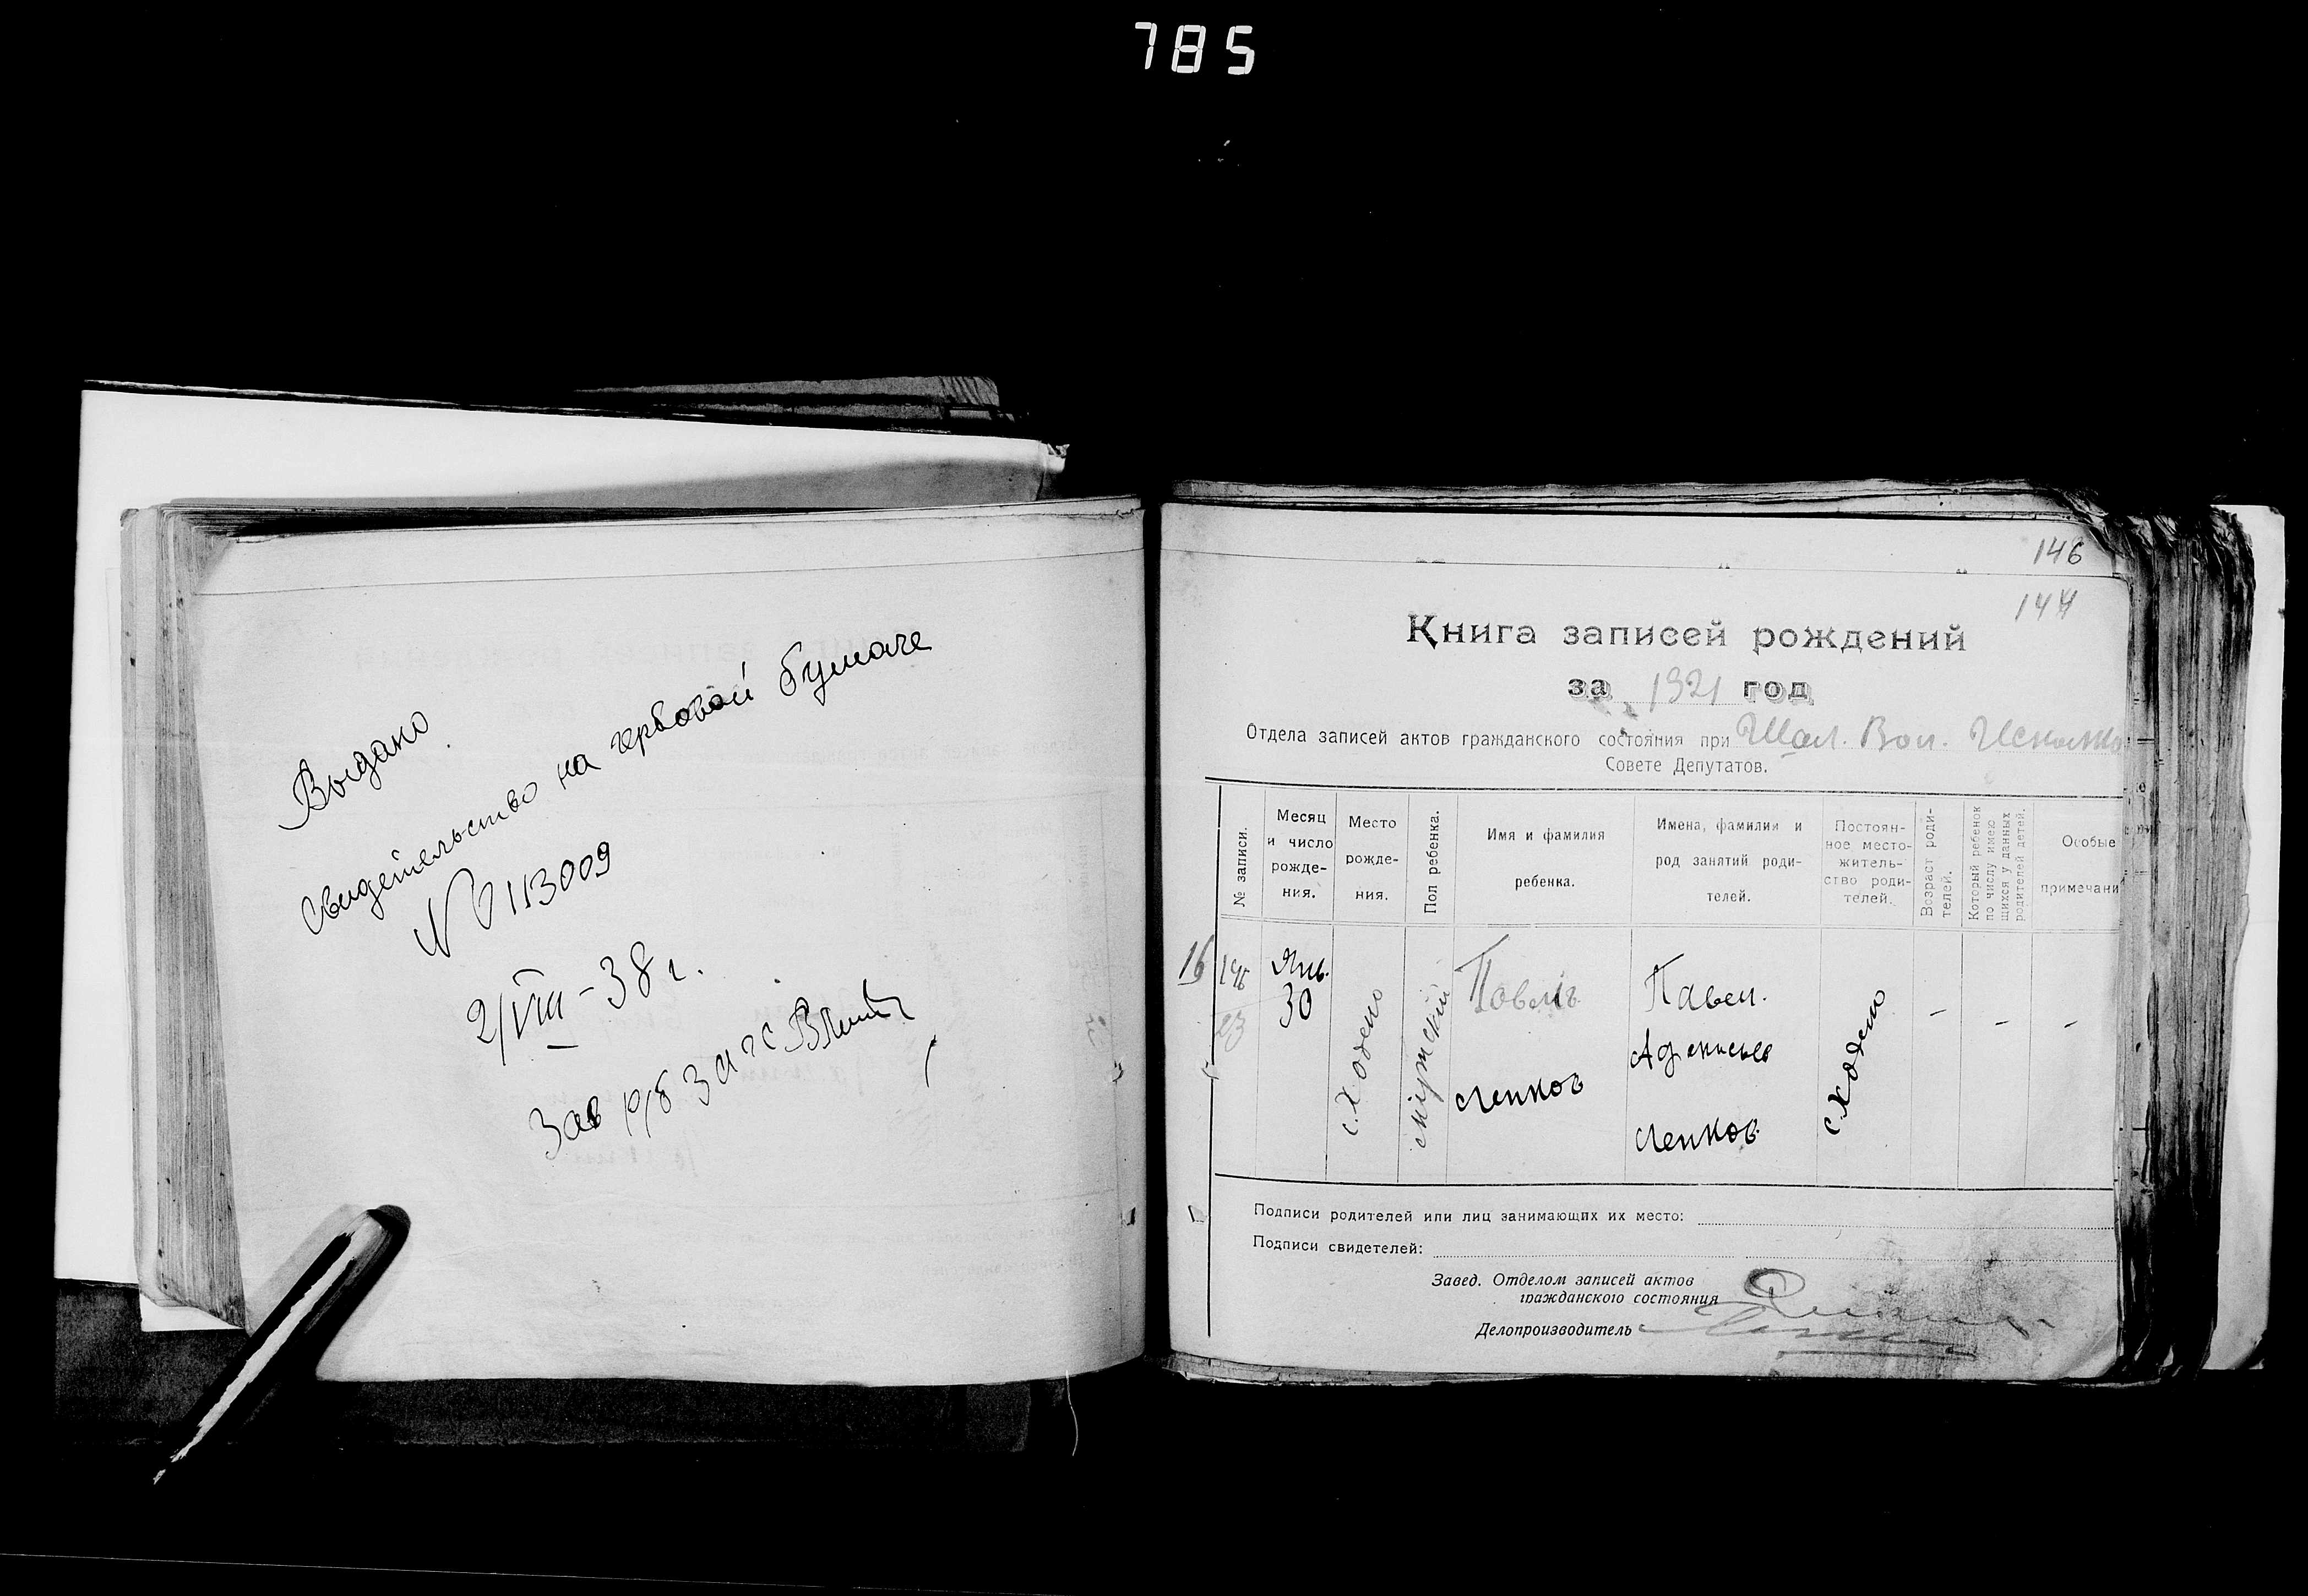 785
Выдано
Свидетельство на гербовой бумаге
№ 113009
2/VIII-38 г.
Зав р/б Загс
146
144
Книга записей рождений
за 1921 год
Отдела записей актов гражданского состояния при Шал. Вол. Исполко
Совете Депутатов.
№ записи.
Месяц и число рожде-ния.
Место рожде-ния.
Пол ребенка.
Имя и фамилия ребенка.
Имена, фамилии и род занятий роди-телей.
Постоян-ное место-житель-ство роди-телей.
Возраст роди-телей.
Который ребенок по числу имею щихся у данных родителей детей.
Особые примечани
16
146
23
Янв.
30
с. Ходено
мужской
Павелъ
Лепков
Павел.
Лепков.
с. Ходено
- - -
Подписи родителей или лиц занимающих их место:
Подписи свидетелей:
Завед. Отделом записей актов
гражданского состояния
Делопроизводитель